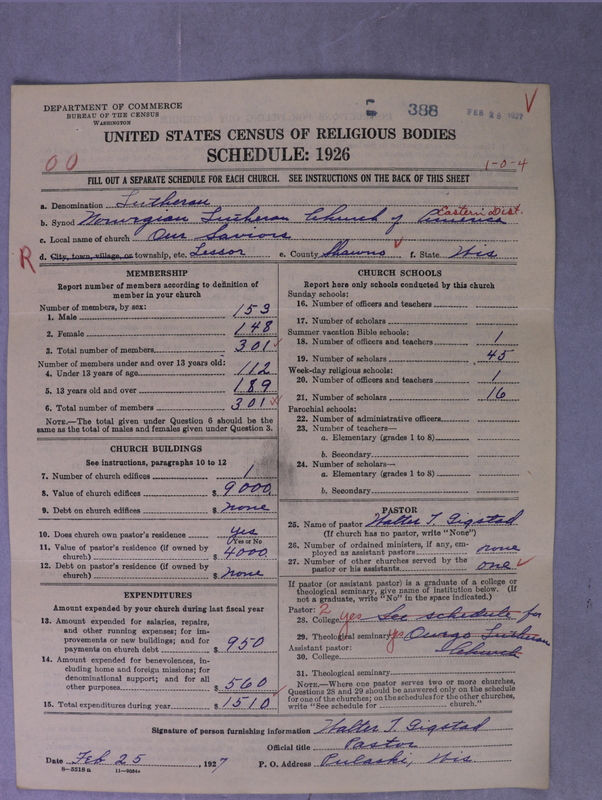 DEPARTMENT OF COMMERCE
BUREAU OF THE CENSUS
WASHINGTON
388
FEB 26 1927
UNITED STATES CENSUS OF RELIGIOUS BODIES
SCHEDULE: 1926
00
1-0-4
FILL OUT A SEPARATE SCHEDULE FOR EACH CHURCH. SEE INSTRUCTIONS ON THE BACK OF THIS SHEET
a. Denomination Lutheran
b. Synod Norwegian Lutheran Church of America Eastern Dist.
c. Local name of church Our Saviors
R
d. City, town, village, or township, etc. Lessor e. County Shawno f. State Wis
MEMBERSHIP
Report number of members according to definition of
member in your church
Number of members, by sex:
1. Male 153
2. Female 148
3. Total number of members 301
Number of members under and over 13 years old:
4. Under 13 years of age 112
5. 13 years old and over 189
6. Total number of members 301
NOTE.—The total given under Question 6 should be the
same as the total of males and females given under Question 3.
CHURCH BUILDINGS
See instructions, paragraphs 10 to 12
7. Number of church edifices 1
8. Value of church edifices $ 9000
9. Debt on church edifices $ none
10. Does church own pastor's residence yes
(Yes or No)
11. Value of pastor's residence (if owned by
church) $ 4000
12. Debt on pastor's residence (if owned by
church) $ none
EXPENDITURES
Amount expended by your church during last fiscal year
13. Amount expended for salaries, repairs,
and other running expenses; for im-
provements or new buildings; and for
payments on church debt $ 950
14. Amount expended for benevolences, in-
cluding home and foreign missions; for
denominational support; and for all
other purposes $ 560
15. Total expenditures during year $ 1510
CHURCH SCHOOLS
Report here only schools conducted by this church
Sunday schools:
16. Number of officers and teachers
17. Number of scholars
Summer vacation Bible schools:
18. Number of officers and teachers 1
19. Number of scholars 45
Week-day religious schools:
20. Number of officers and teachers 1
21. Number of scholars 16
Parochial schools:
22. Number of administrative officers
23. Number of teachers—
a. Elementary (grades 1 to 8)
b. Secondary
24. Number of scholars—
a. Elementary (grades 1 to 8)
b. Secondary
PASTOR
25. Name of pastor Walter T. Gigstad
(If church has no pastor, write "None")
26. Number of ordained ministers, if any, em-
ployed as assistant pastors none
27. Number of other churches served by the
pastor or his assistants one
If pastor (or assistant pastor) is a graduate of a college or
theological seminary, give name of institution below. (If
not a graduate, write "No" in the space indicated.)
Pastor: 2
28. College yes See schedule for
29. Theological seminary yes Lutheran
Assistant pastor: Church
30. College
31. Theological seminary
NOTE.—Where one pastor serves two or more churches,
Questions 28 and 29 should be answered only on the schedule
for one of the churches; on the schedules for the other churches,
write "See schedule for church."
Signature of person furnishing information Walter T. Gigstad
Official title Pastor
Date Feb 25, 1927 P. O. Address Pulaski, Wis.
8-5518a